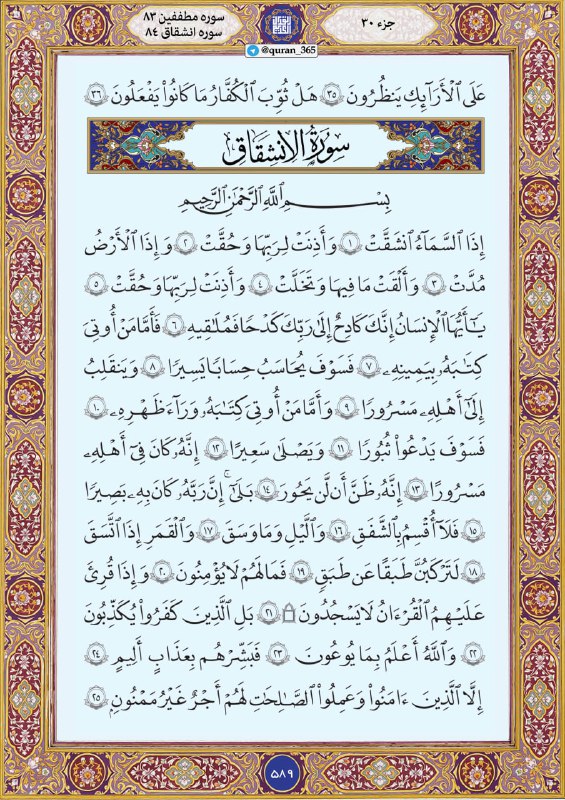 جزء ۳۰
سوره مطففین ۸۳
سوره انشقاق ۸۴
@quran_365
عَلَى ٱلْأَرَآئِكِ يَنظُرُونَ ۝٣٥ هَلْ ثُوِّبَ ٱلْكُفَّارُ مَا كَانُوا۟ يَفْعَلُونَ ۝٣٦
سورة الانشقاق
بِسْمِ ٱللَّهِ ٱلرَّحْمَٰنِ ٱلرَّحِيمِ
إِذَا ٱلسَّمَآءُ ٱنشَقَّتْ ۝١ وَأَذِنَتْ لِرَبِّهَا وَحُقَّتْ ۝٢ وَإِذَا ٱلْأَرْضُ
مُدَّتْ ۝٣ وَأَلْقَتْ مَا فِيهَا وَتَخَلَّتْ ۝٤ وَأَذِنَتْ لِرَبِّهَا وَحُقَّتْ ۝٥
يَٰٓأَيُّهَا ٱلْإِنسَٰنُ إِنَّكَ كَادِحٌ إِلَىٰ رَبِّكَ كَدْحًا فَمُلَٰقِيهِ ۝٦ فَأَمَّا مَنْ أُوتِىَ
كِتَٰبَهُۥ بِيَمِينِهِۦ ۝٧ فَسَوْفَ يُحَاسَبُ حِسَابًا يَسِيرًا ۝٨ وَيَنقَلِبُ
إِلَىٰٓ أَهْلِهِۦ مَسْرُورًا ۝٩ وَأَمَّا مَنْ أُوتِىَ كِتَٰبَهُۥ وَرَآءَ ظَهْرِهِۦ ۝١٠
فَسَوْفَ يَدْعُوا۟ ثُبُورًا ۝١١ وَيَصْلَىٰ سَعِيرًا ۝١٢ إِنَّهُۥ كَانَ فِىٓ أَهْلِهِۦ
مَسْرُورًا ۝١٣ إِنَّهُۥ ظَنَّ أَن لَّن يَحُورَ ۝١٤ بَلَىٰٓ إِنَّ رَبَّهُۥ كَانَ بِهِۦ بَصِيرًا
۝١٥ فَلَآ أُقْسِمُ بِٱلشَّفَقِ ۝١٦ وَٱلَّيْلِ وَمَا وَسَقَ ۝١٧ وَٱلْقَمَرِ إِذَا ٱتَّسَقَ
۝١٨ لَتَرْكَبُنَّ طَبَقًا عَن طَبَقٍ ۝١٩ فَمَا لَهُمْ لَا يُؤْمِنُونَ ۝٢٠ وَإِذَا قُرِئَ
عَلَيْهِمُ ٱلْقُرْءَانُ لَا يَسْجُدُونَ ۩ ۝٢١ بَلِ ٱلَّذِينَ كَفَرُوا۟ يُكَذِّبُونَ
۝٢٢ وَٱللَّهُ أَعْلَمُ بِمَا يُوعُونَ ۝٢٣ فَبَشِّرْهُم بِعَذَابٍ أَلِيمٍ ۝٢٤
إِلَّا ٱلَّذِينَ ءَامَنُوا۟ وَعَمِلُوا۟ ٱلصَّٰلِحَٰتِ لَهُمْ أَجْرٌ غَيْرُ مَمْنُونٍۭ ۝٢٥
۵۸۹